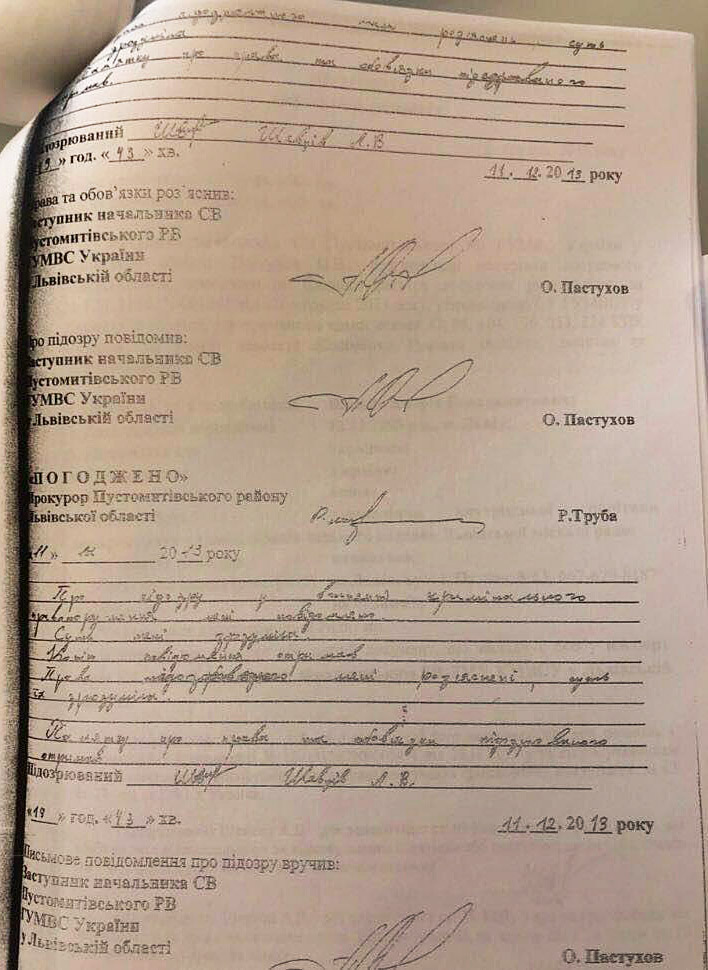 підозрюваного мені роз'яснені, суть
зрозуміла
Пам'ятку про права та обов'язки підозрюваного
отримав.
Підозрюваний Шевців А.В
«19» год. «43» хв.
11. 12. 2013 року
Права та обов'язки роз'яснив:
Заступник начальника СВ
Пустомитівського РВ
ГУМВС України
у Львівській області
О. Пастухов
Про підозру повідомив:
Заступник начальника СВ
Пустомитівського РВ
ГУМВС України
у Львівській області
О. Пастухов
«ПОГОДЖЕНО»
Прокурор Пустомитівського району
Львівської області
Р.Труба
«11» 2013 року
Про підозру у вчиненні кримінального
правопорушення мені повідомлено.
Суть мені зрозуміла.
Копію повідомлення отримав
Права підозрюваного мені роз'яснені, суть
їх зрозуміла.
Пам'ятку про права та обов'язки підозрюваного
отримав
Підозрюваний Шевців А.В.
«19» год. «43» хв.
11. 12. 2013 року
Письмове повідомлення про підозру вручив:
Заступник начальника СВ
Пустомитівського РВ
ГУМВС України
у Львівській області
О. Пастухов